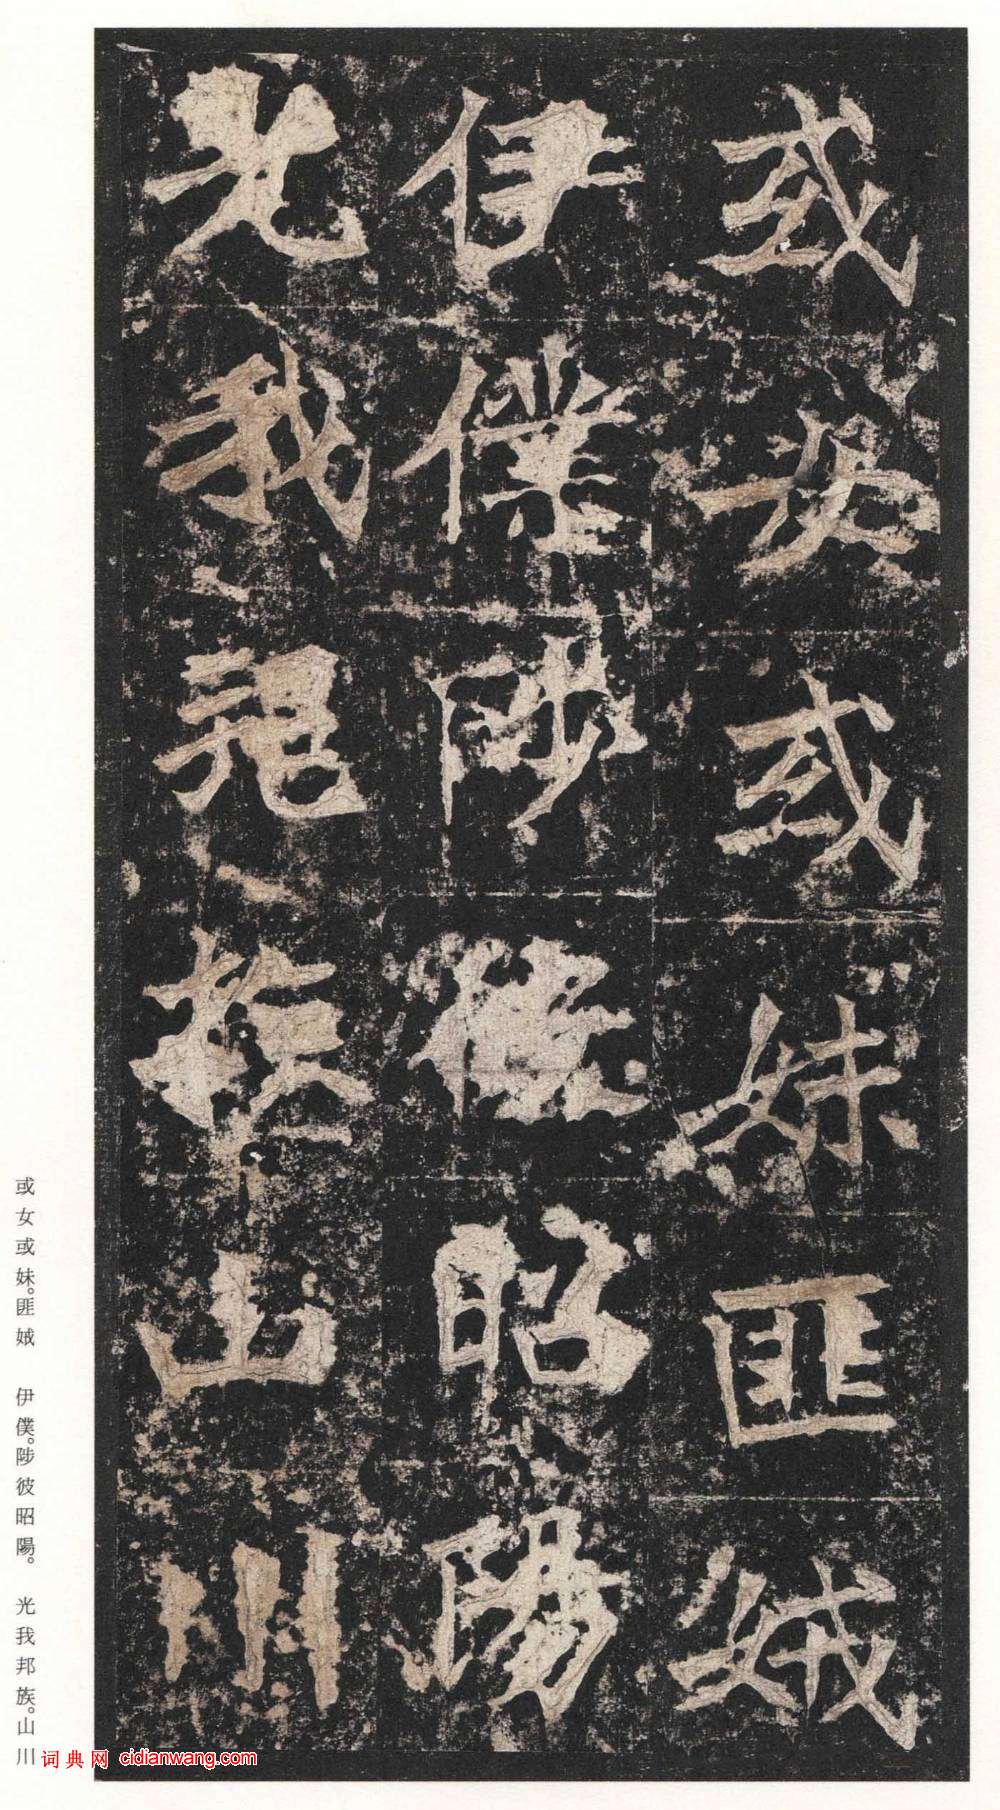 或女或妹匪娀
伊僕陟彼昭陽
光我邦族山川
或女或妹。匪娀 伊僕。陟彼昭陽。 光我邦族。山川
词典网 cidianwang.com